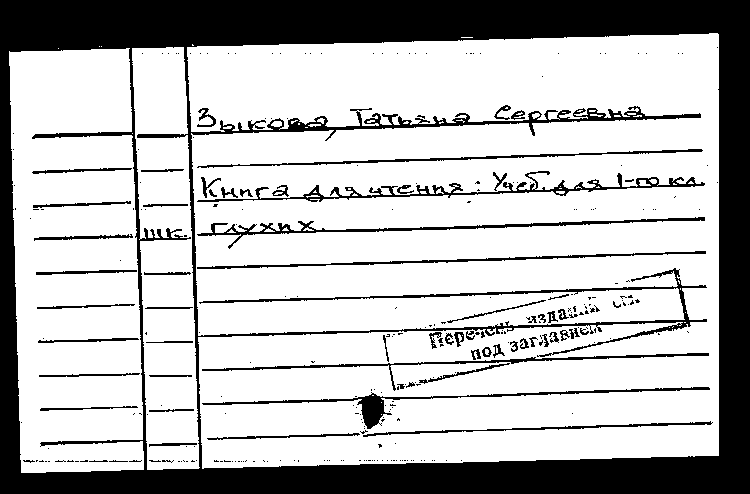 Зыкова, Татьяна Сергеевна
Книга для чтения: Учеб. для 1-го кл.
шк. глухих.
Перечень изданий см.
под заглавием